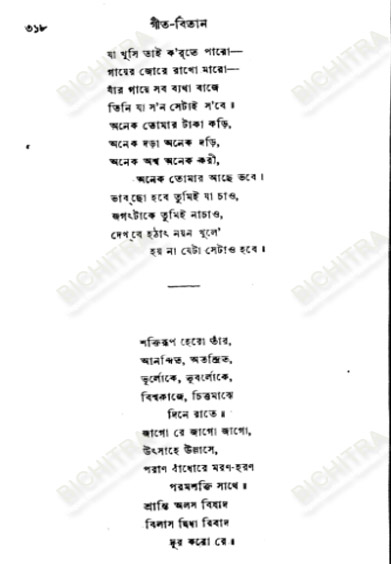 ৩১৮
গীত-বিতান
যা খুসি তাই ক'রতে পারো—
গায়ের জোরে রাখো মারো—
যাঁর গায়ে সব ব্যথা বাজে
তিনি যা স'ন সেটাই স'বে॥
অনেক তোমার টাকা কড়ি,
অনেক দড়া অনেক দড়ি,
অনেক অশ্ব অনেক করী,
অনেক তোমার আছে ভবে।
ভাব্‌ছো হবে তুমিই যা চাও,
জগৎটাকে তুমিই নাচাও,
দেখ্‌বে হঠাৎ নয়ন খুলে'
হয় না যেটা সেটাও হবে॥
শক্তিরূপ হেরো তাঁর,
আনন্দিত, অতন্দ্রিত,
ভূর্লোকে, ভুবর্লোকে,
বিশ্বকাজে, চিত্তমাঝে
দিনে রাতে॥
জাগো রে জাগো জাগো,
উৎসাহে উল্লাসে,
পরাণ বাঁধোরে মরণ-হরণ
পরমশক্তি সাথে॥
শ্রান্তি আলস বিষাদ
বিলাস দ্বিধা বিবাদ
দূর করো রে॥
BICHITRA
BICHITRA
BICHITRA
BICHITRA
BICHITRA
BICHITRA